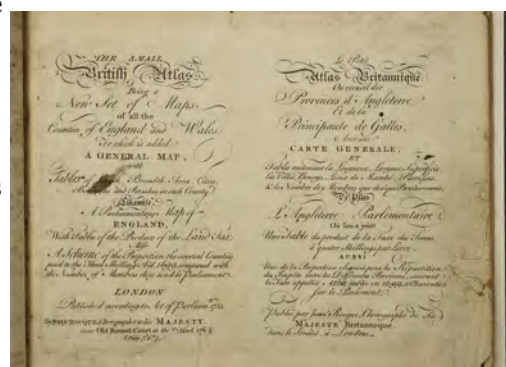 THE SMALL
British Atlas
Being a
New Set of Maps
of all the
Counties of England and Wales
To which is added
A GENERAL MAP,
with
Tables of Length, Breadth, Area, Cities,
Boroughs and Parishes in each County
Likewise
A Parliamentary Map of
ENGLAND,
With Table of the Produce of the Land Tax
Also
A Scheme of the Proportion the several Counties
paid to the Three Shillings Aid, 1699, compared with
the Number of Members they send to Parliament
LONDON
Published according to Act of Parliam.t
By JOHN ROCQUE, Chorographer to his MAJESTY,
near Old Round Court in the Strand. 1764
Le Petit
Atlas Britannique
Ou recueil des
Provinces d'Angleterre
Et de la
Principauté de Galles,
Avec une
CARTE GENERALE,
ET
Table contenant la Longueur, Largeur, Superficie
les Villes, Bourgs, Lieux de Marché, Paroisses
& les Nombre des Membres que chaque
De Plus
L'Angleterre Parlementaire
Où l'on a joint
Une Table du produit de la Taxe des Terres
à quatre Shellings par Livre
AUSSI
Une de la Proportion observée pour la Répartition
du Impôts entre les Differentes Provinces, suivant
la Taxe appellée en 1699, et Observation
sur le Parlement
Publié par Jean Rocque, Chorographe de Sa
MAJESTÉ Britannique
dans le Strand, à Londres.